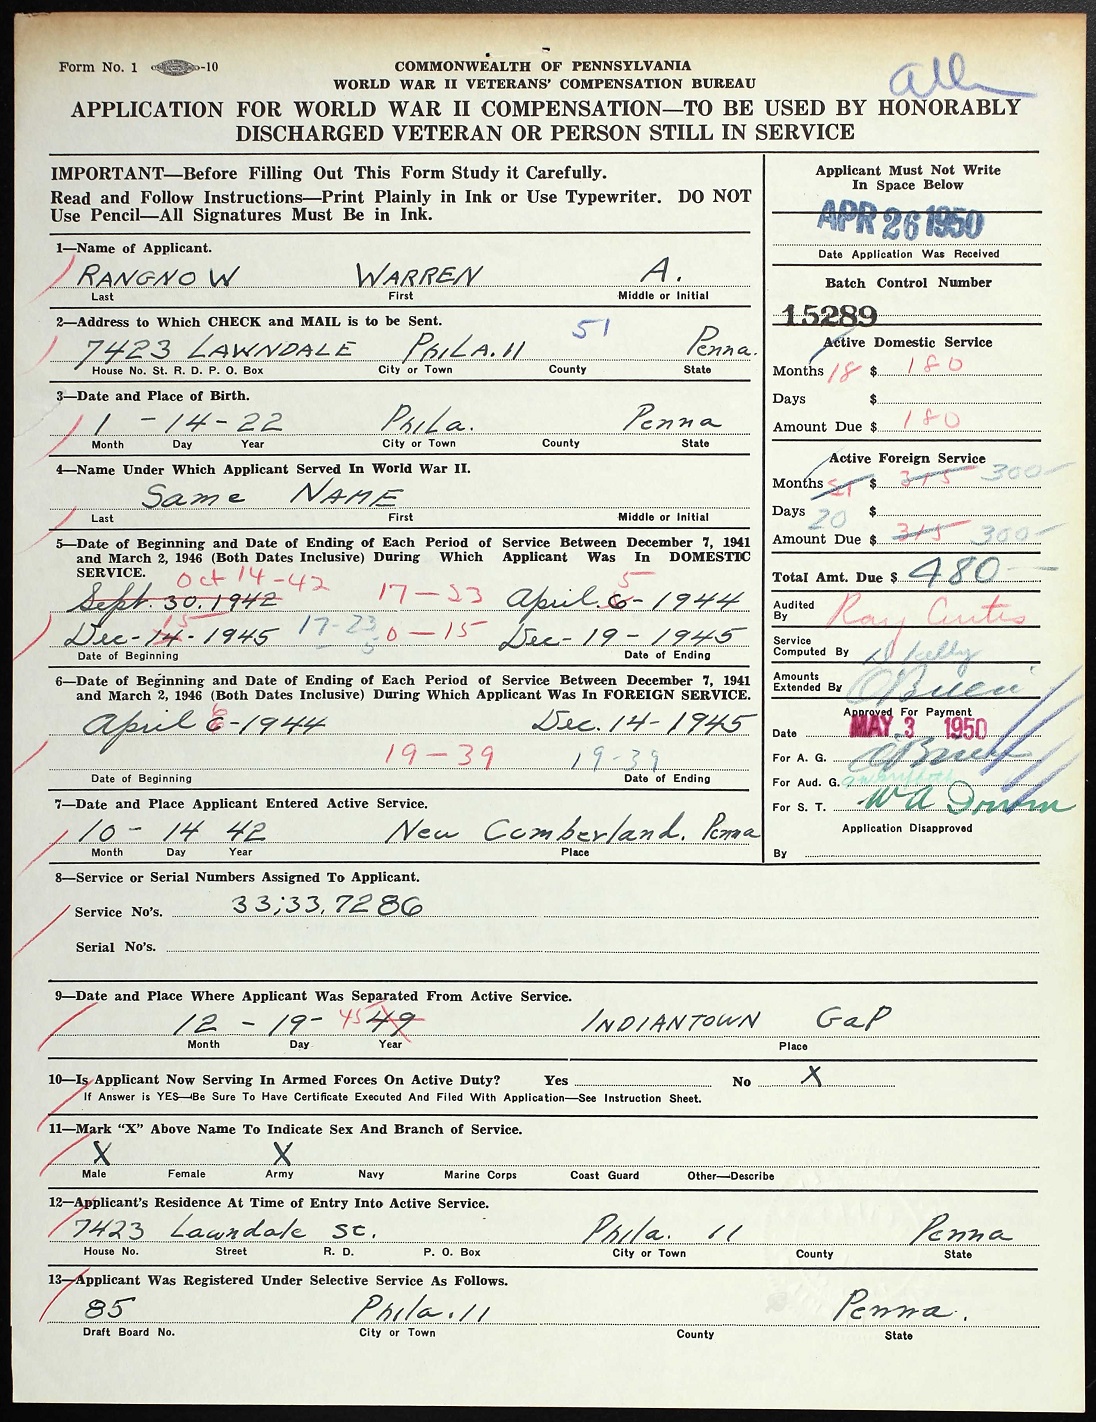 Form No. 1 -10
COMMONWEALTH OF PENNSYLVANIA
WORLD WAR II VETERANS' COMPENSATION BUREAU
APPLICATION FOR WORLD WAR II COMPENSATION—TO BE USED BY HONORABLY
DISCHARGED VETERAN OR PERSON STILL IN SERVICE
IMPORTANT—Before Filling Out This Form Study it Carefully.
Read and Follow Instructions—Print Plainly in Ink or Use Typewriter. DO NOT
Use Pencil—All Signatures Must Be in Ink.
Applicant Must Not Write
In Space Below
APR 26 1950
Date Application Was Received
Batch Control Number
15289
Active Domestic Service
Months 18 $ 180
Days $
Amount Due $ 180
Active Foreign Service
Months 21 $ 315 300-
Days 20 $
Amount Due $ 315 300-
Total Amt. Due $ 480
Audited
By Ray Curtis
Service
Computed By Skelly
Amounts
Extended By O'Brien
Approved For Payment
Date MAY 3 1950
For A. G. O'Brien
For Aud. G.
For S. T.
Application Disapproved
By
1—Name of Applicant.
RANGNOW WARREN A.
Last First Middle or Initial
2—Address to Which CHECK and MAIL is to be Sent.
51
7423 LAWNDALE PHILA. 11 Penna.
House No. St. R. D. P. O. Box City or Town County State
3—Date and Place of Birth.
1 - 14 - 22 Phila. Penna
Month Day Year City or Town County State
4—Name Under Which Applicant Served In World War II.
Same NAME
Last First Middle or Initial
5—Date of Beginning and Date of Ending of Each Period of Service Between December 7, 1941
and March 2, 1946 (Both Dates Inclusive) During Which Applicant Was In DOMESTIC
SERVICE.
Oct 14-42 5
Sept. 30. 1942 17-23 April 6- 1944
15
Dec- 14 - 1945 17-23 0-15 Dec- 19 - 1945
5
Date of Beginning Date of Ending
6—Date of Beginning and Date of Ending of Each Period of Service Between December 7, 1941
and March 2, 1946 (Both Dates Inclusive) During Which Applicant Was In FOREIGN SERVICE.
April 6-1944 Dec. 14- 1945
19-39 19-39
Date of Beginning Date of Ending
7—Date and Place Applicant Entered Active Service.
10 - 14 42 New Cumberland. Penna
Month Day Year Place
8—Service or Serial Numbers Assigned To Applicant.
Service No's. 33;33,7286
Serial No's.
9—Date and Place Where Applicant Was Separated From Active Service.
12 - 19- 45 49 INDIANTOWN GaP
Month Day Year Place
10—Is Applicant Now Serving In Armed Forces On Active Duty? Yes No X
If Answer is YES—Be Sure To Have Certificate Executed And Filed With Application—See Instruction Sheet.
11—Mark "X" Above Name To Indicate Sex And Branch of Service.
X X
Male Female Army Navy Marine Corps Coast Guard Other—Describe
12—Applicant's Residence At Time of Entry Into Active Service.
7423 Lawndale st. Phila. 11 Penna
House No. Street R. D. P. O. Box City or Town County State
13—Applicant Was Registered Under Selective Service As Follows.
85 Phila. 11 Penna.
Draft Board No. City or Town County State